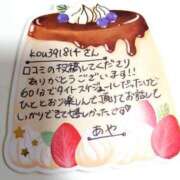 kou391814さん
口コミの投稿してくださり
ありがとうございます!!
60分でタイトスケジュールだったけど
ひとときお楽しんで頂けてお話しも
しっかりできて嬉しかったです
あや